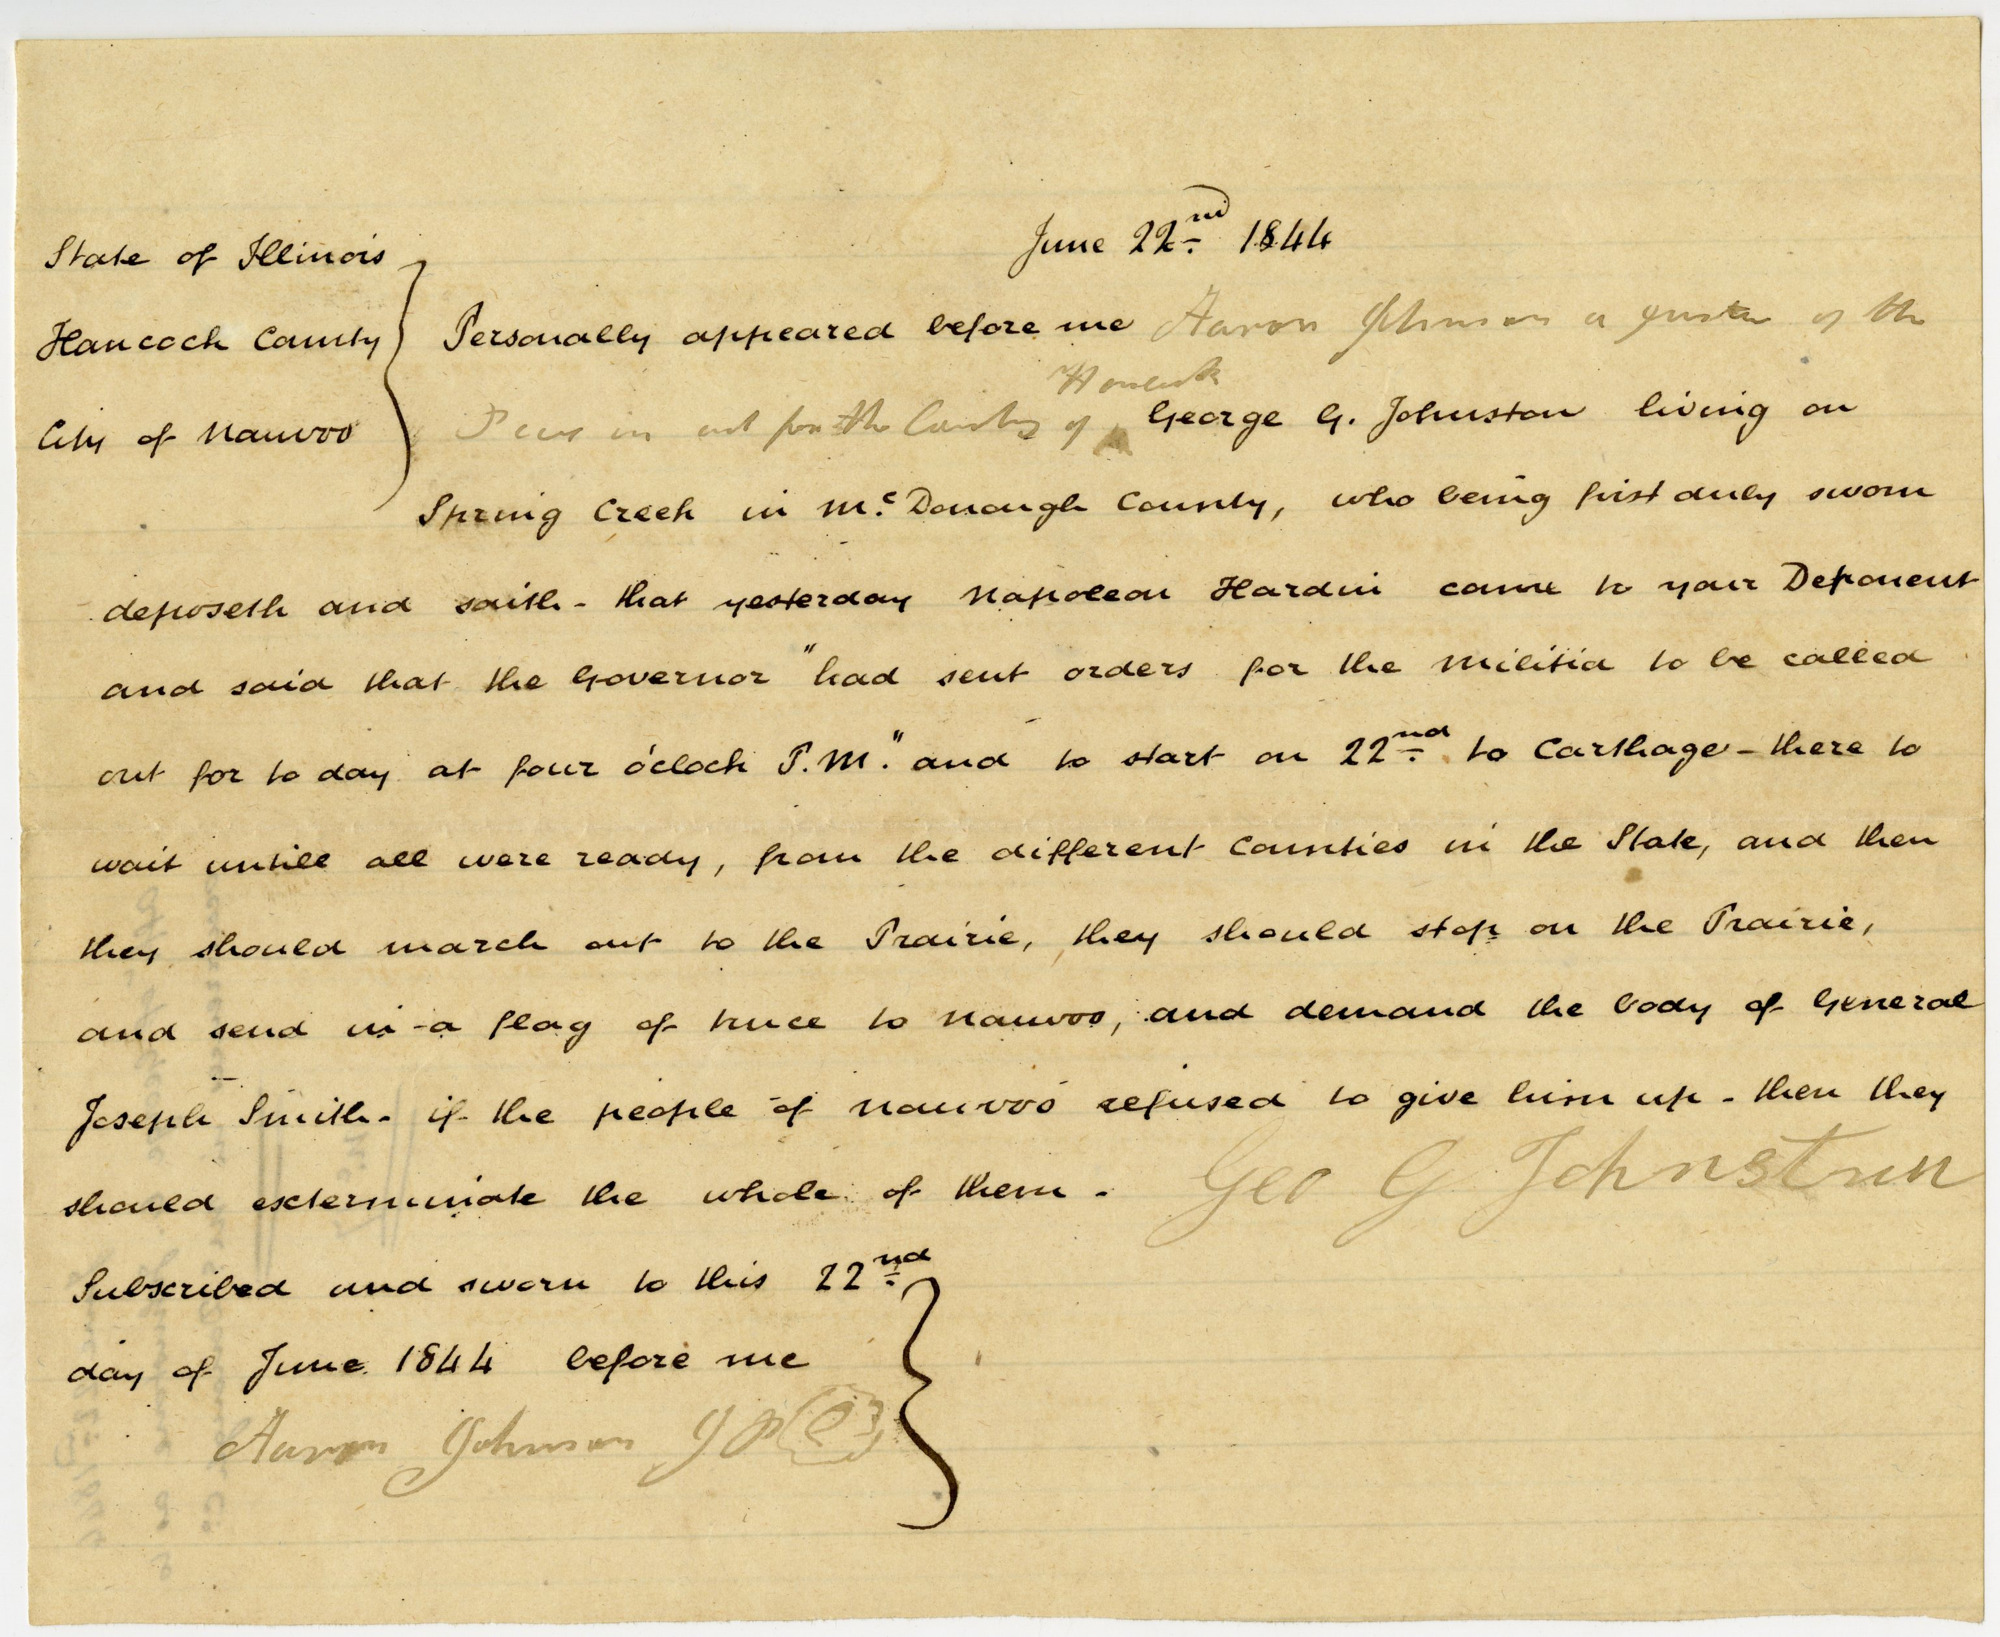 June 22nd 1844
State of Illinois
Hancock County
City of Nauvoo
Personally appeared before me Aaron Johnson a justice of the
Peace in and for the County of Hancock George G. Johnston living on
Spring Creek in Mc. Donough County, who being first duly sworn
deposeth and saith - that yesterday Napoleon Hardin came to your Deponent
and said that the Governor "had sent orders for the Militia to be called
out for to day at four o'clock P.M." and to start on 22nd to Carthage - there to
wait untill all were ready, from the different Counties in the State, and then
they should march out to the Prairie, they should stop on the Prairie,
and send in a flag of truce to Nauvoo, and demand the body of General
Joseph Smith - if the people of Nauvoo refused to give him up - then they
should exterminate the whole of them -
Geo G Johnston
Subscribed and sworn to this 22nd
day of June 1844 before me
Aaron Johnson J P